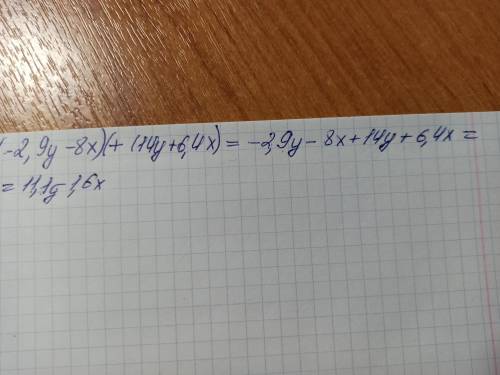 (-2,9y-8x)(+(14y+6,4x)=-2,9y-8x+14y+6,4x=
=11,1y-1,6x